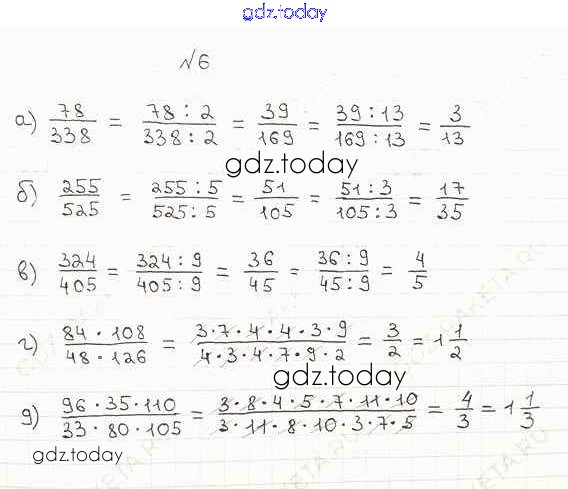 gdz.today
№6
а) 78/338 = 78 : 2/338 : 2 = 39/169 = 39 : 13/169 : 13 = 3/13
gdz.today
б) 255/525 = 255 : 5/525 : 5 = 51/105 = 51 : 3/105 : 3 = 17/35
в) 324/405 = 324 : 9/405 : 9 = 36/45 = 36 : 9/45 : 9 = 4/5
г) 84 · 108/48 · 126 = 3 · 7 · 4 · 4 · 3 · 9/4 · 3 · 4 · 7 · 9 · 2 = 3/2 = 1 1/2
gdz.today
д) 96 · 35 · 110/33 · 80 · 105 = 3 · 8 · 4 · 5 · 7 · 11 · 10/3 · 11 · 8 · 10 · 3 · 7 · 5 = 4/3 = 1 1/3
gdz.today